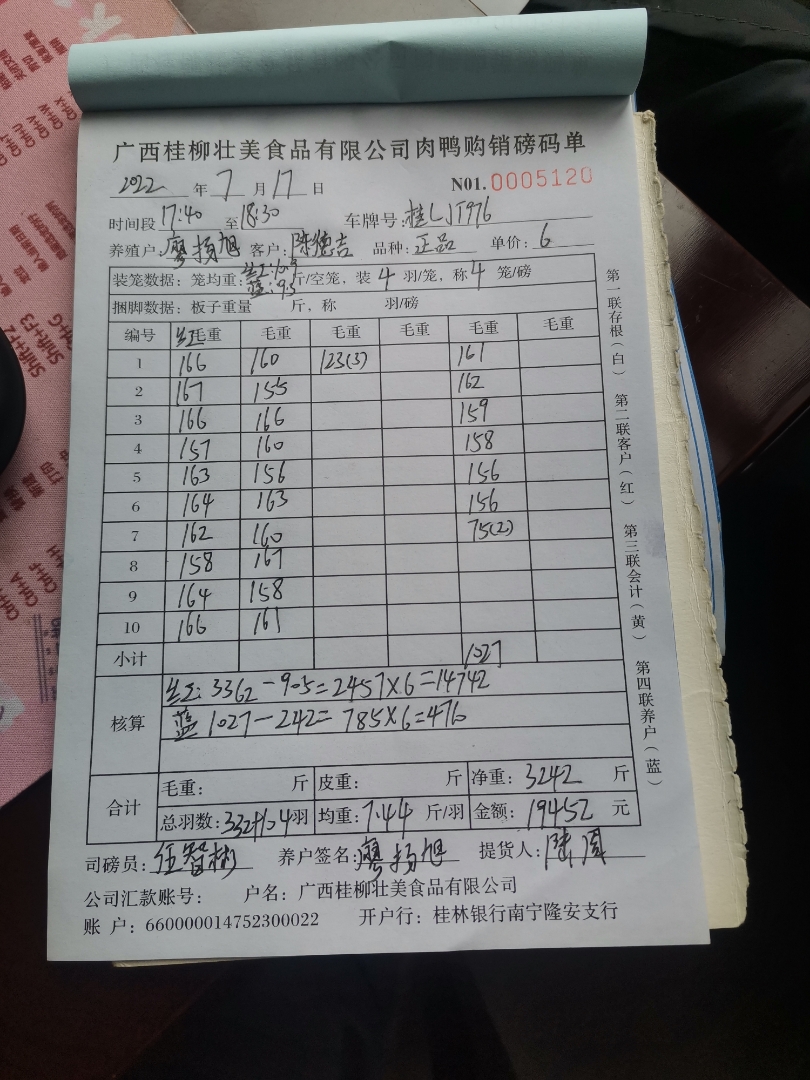 广西桂柳壮美食品有限公司肉鸭购销磅码单
2022 年 7 月 17 日 N01.0005120
时间段 17:40 至 18:30 车牌号: 桂LJT976
养殖户: 廖扬旭 客户: 陈德吉 品种: 正品 单价: 6
装笼数据: 笼均重: 红:10.9 蓝:9.3 斤/空笼, 装 4 羽/笼, 称 4 笼/磅
捆脚数据: 板子重量 斤, 称 羽/磅
编号 红毛重 毛重 毛重 毛重 毛重 毛重
1 166 160 123(3) 161
2 167 155 162
3 166 166 159
4 157 160 158
5 163 156 156
6 164 163 156
7 162 160 75(2)
8 158 167
9 164 158
10 166 161
小计 1027
核算
红: 3362-905=2457×6=14742
蓝 1027-242=785×6=4710
合计
毛重: 斤 皮重: 斤 净重: 3242 斤
总羽数: 羽 均重: 7.44 斤/羽 金额: 19452 元
司磅员: 伍智彬 养户签名: 廖扬旭 提货人:
公司汇款账号: 户名: 广西桂柳壮美食品有限公司
账 户: 660000014752300022 开户行: 桂林银行南宁隆安支行
第一联存根(白) 第二联客户(红) 第三联会计(黄) 第四联养户(蓝)